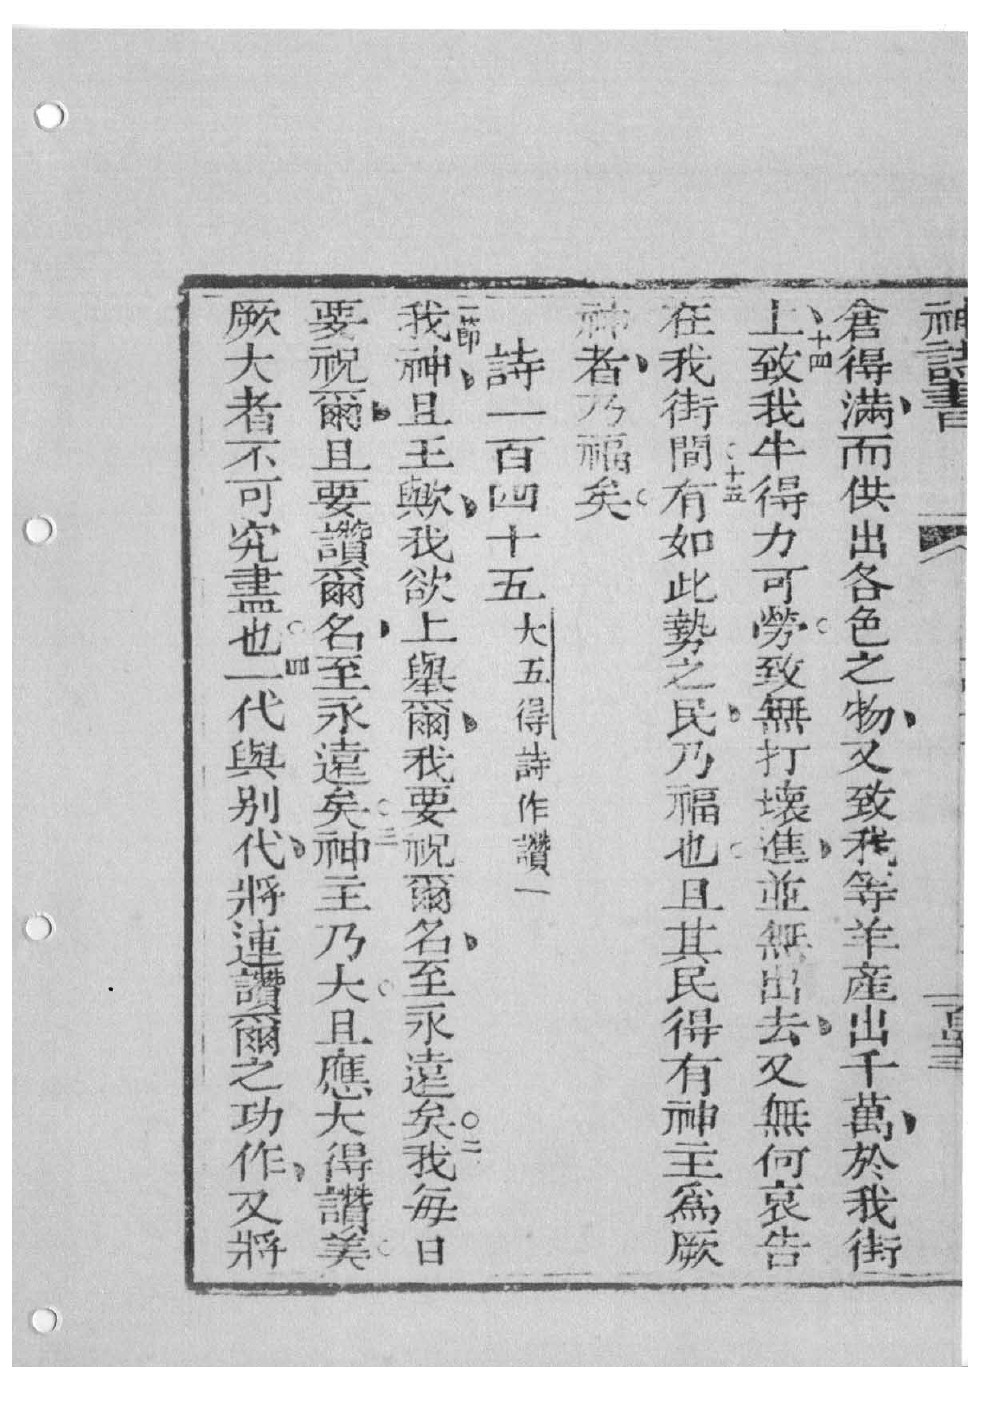 神詩書
倉得滿、而供出各色之物、又致我等羊產出千萬、於我街
上、十四致我牛得力可勞。致無打壞進、並無出去、又無何哀告
在我街間。十五有如此勢之民、乃福也。且其民得有神主為厥
神者、乃福矣。
詩一百四十五 大五得詩作讚一
一節我神、且王歟、我欲上舉爾、我要祝爾名、至永遠矣。二我每日
要祝爾、且要讚爾名、至永遠矣。三神主乃大。且應大得讚美。
厥大者不可究盡也。四一代與別代、將連讚爾之功作、又將